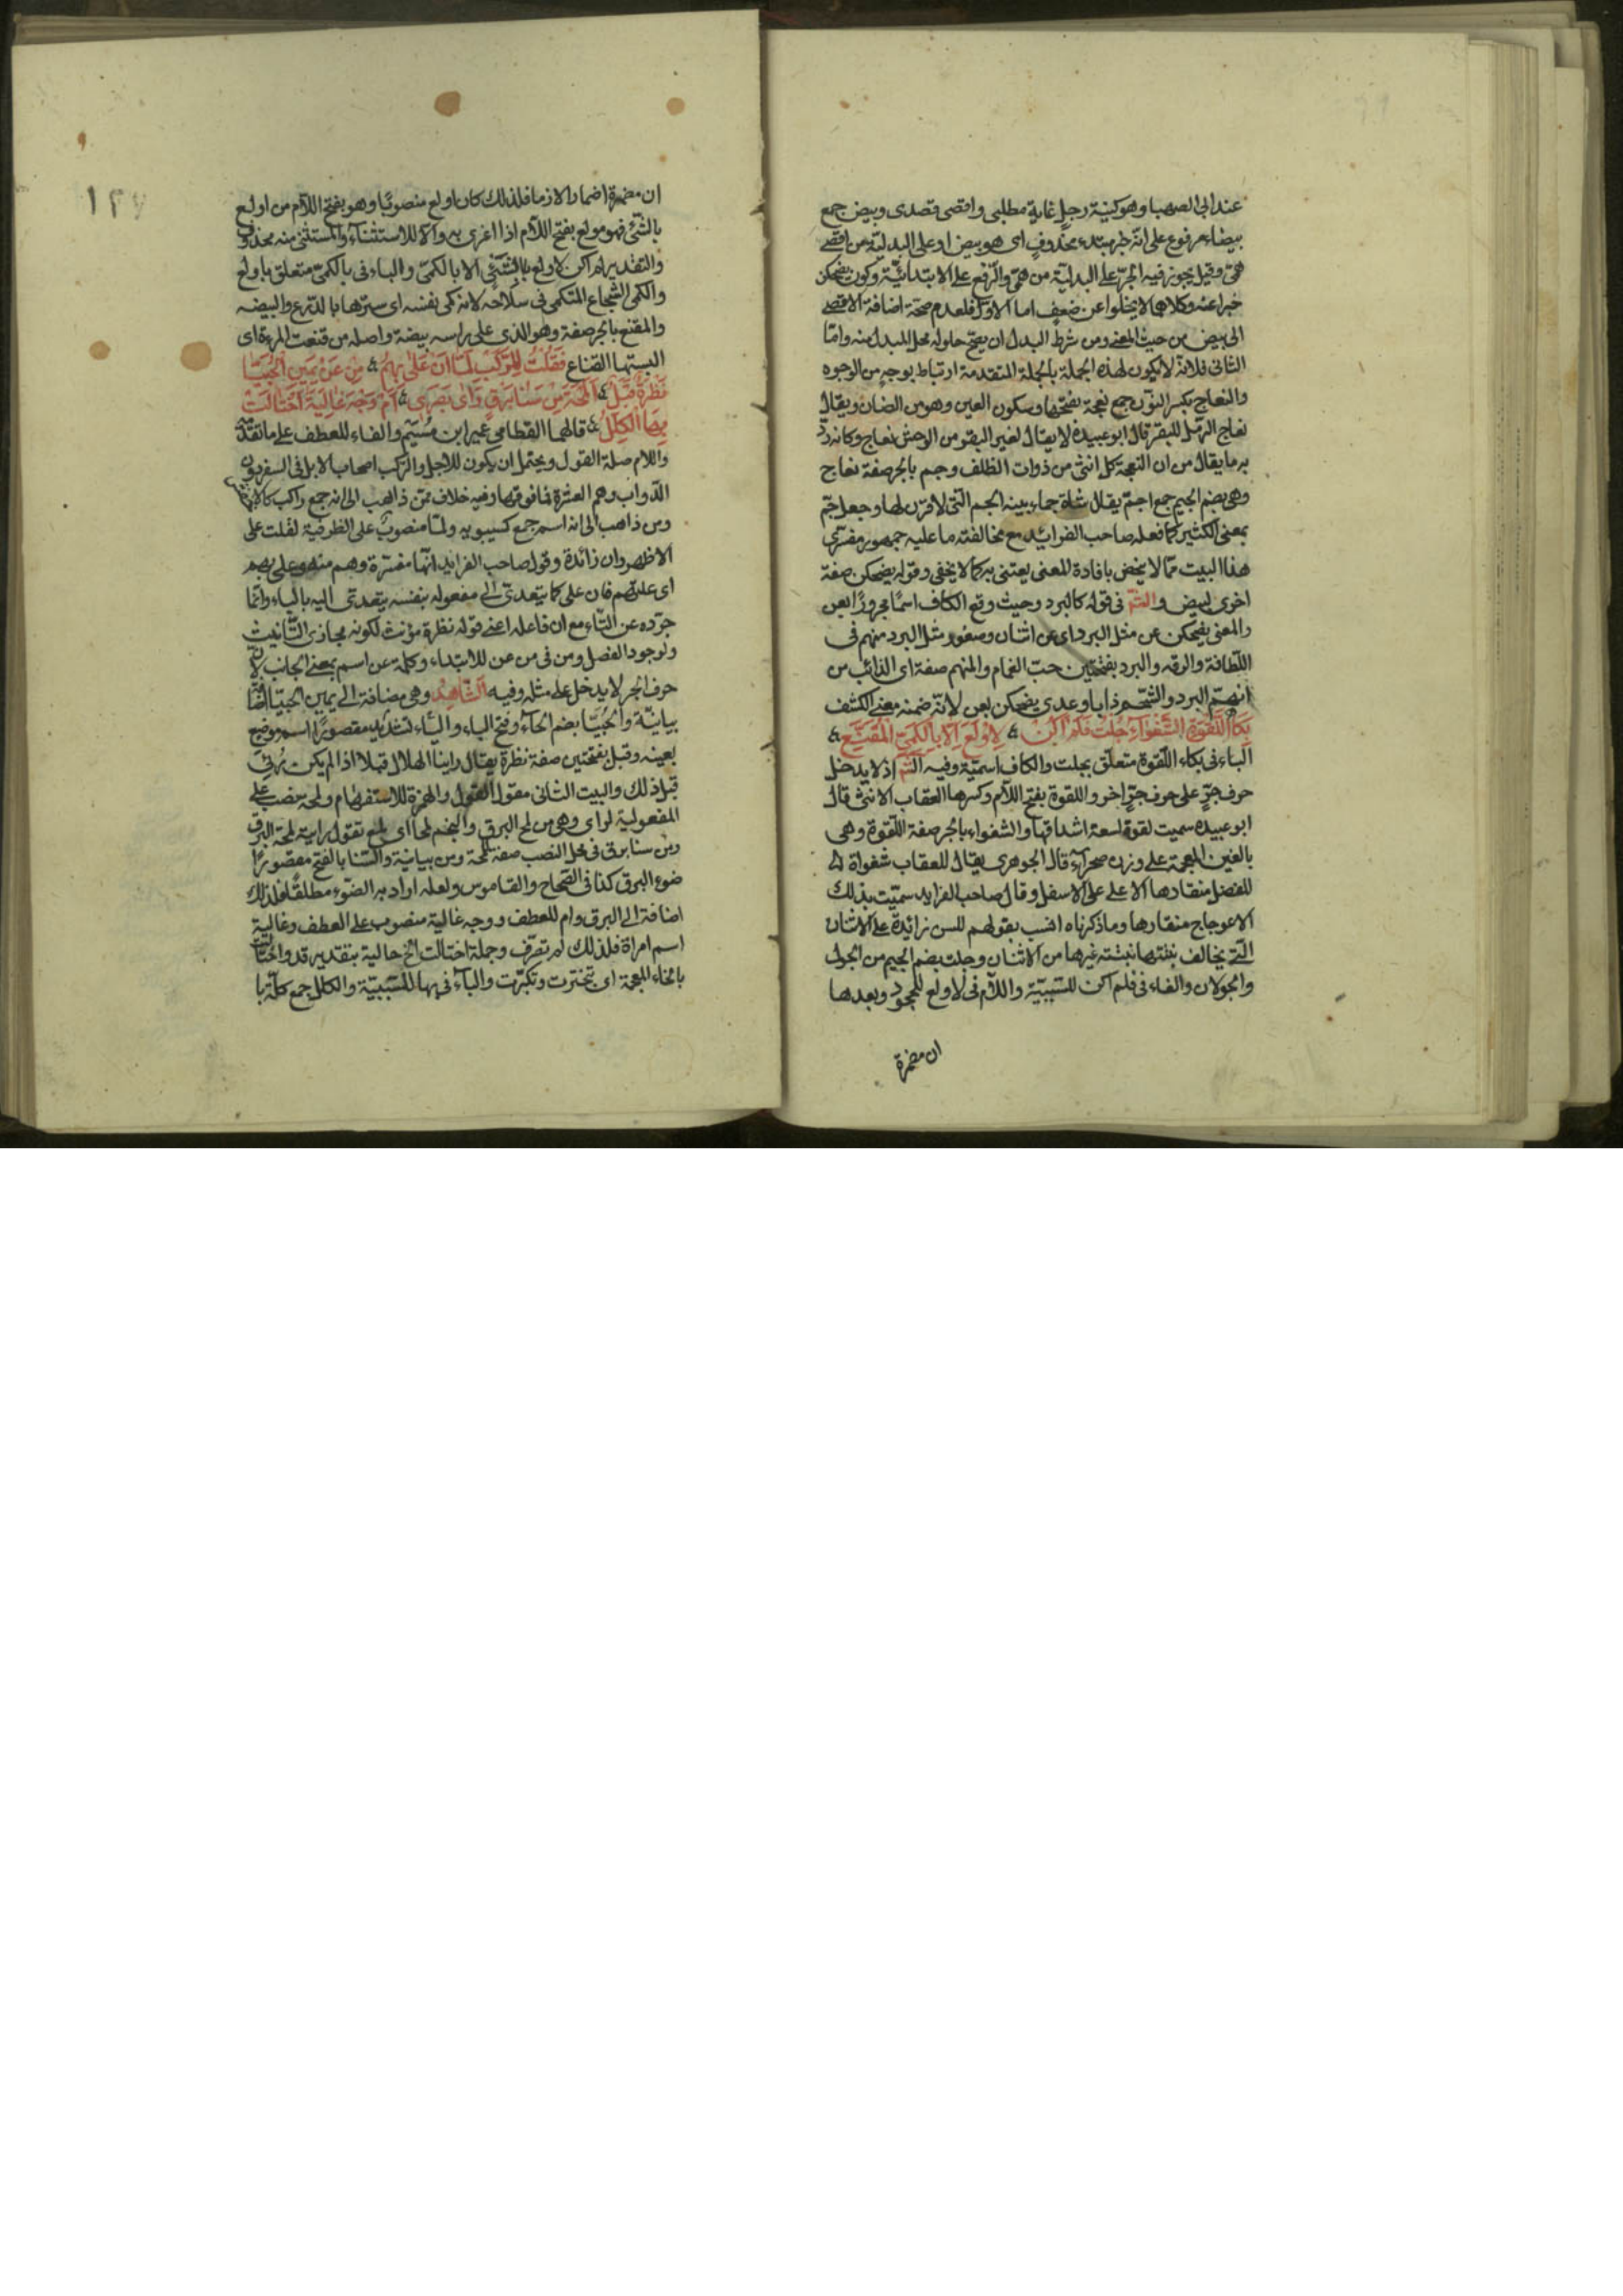 عند ابى الصهبا وهو كنية رجل غاية مطلبى واقصى قصدى وبيض جمع
بيضاء مرفوع على انه خبر مبتدء محذوف اى هو بيض او على البدلية من اقصى
همى وقيل يجوز فيه الجر على البدلية من همى والرفع على الابتدائية وكون يضحكن
خبرا عنه وكلاهما لا يخلوا عن ضعف اما الاول فلعدم صحة اضافة الاقصى
الى بيض من حيث المعنى ومن شرط البدل ان يصح حلوله محل المبدل منه واما
الثانى فلانه لا يكون لهذه الجملة بالجملة المتقدمة ارتباط بوجه من الوجوه
والنعاج بكسر النون جمع نعجة بفتحها وسكون العين وهو من الضان ويقال
نعاج الرمل للبقر قال ابو عبيدة لا يقال لغير البقر من الوحش نعاج وكانه رد
به ما يقال من ان النعجة كل انثى من ذوات الظلف وجم بالجر صفة نعاج
وهى بضم الجيم جمع اجم يقال شاة جماء بينه الجم التى لا قرن لها وجعل جم
بمعنى الكثير كما فعله صاحب الفرائد مع مخالفته ما عليه جمهور مفسرى
هذا البيت مما لا ينحض بافادة المعنى يعتنى به كما لا يخفى وقوله يضحكن صفة
اخرى لبيض والشه فى قوله كالبرد وحيث وقع الكاف اسما مجرورا بعن
والمعنى يضحكن عن مثل البرد اى عن اسنان وصغور مثل البرد منهم فى
اللطافة والرقه والبرد بفتحتين حب الغمام والمنهم صفة اى الذائب من
انهم البرد والشحم ذابا وعدى يضحكن بعن لانه ضمنه معنى الكشف
بكا اللقوة الشغواء جلت فلم اكن لاولع الا بالكمى المقنع
الباء فى بكاء اللقوة متعلق بجلت والكاف اسمية وفيه الشه اذ لا يدخل
حرف جر على حرف جر اخر واللقوة بفتح اللام وكسرها العقاب الانثى قال
ابو عبيده سميت لقوة لسعة اشداقها والشغواء بالجر صفة اللقوة وهى
بالغين المعجمة على وزن صحراء قال الجوهرى يقال للعقاب شغواء
لفضل منقارها الاعلى على الاسفل وقال صاحب الفرايد سميت بذلك
لاعوجاج منقارها وما ذكرناه انسب بقولهم للسن زائدة على الاسنان
التى يخالف نبتتها نبتة غيرها من الاسنان وجلت بضم الجيم من الجول
والجولان والفاء فى فلم اكن للسببية واللام فى لاولع للجحود وبعدها
ان مضمرة
١٣٧
ان مضمرة اضمارا لازما فلذلك كان اولع منصوبا وهو بفتح اللام من اولع
بالشئ فهو مولع بفتح اللام اذا اغرى به والا للاستثناء والمستثنى منه محذوف
والتقدير لم اكن لاولع بالشئ الا بالكمى والباء فى بالكمى متعلق باولع
والكمى الشجاع المتكمى فى سلاحه لانه كمى نفسه اى سترها بالدرع والبيضه
والمقنع بالجر صفة وهو الذى على راسه بيضة واصله من قنعت المرءة اى
البستها القناع فقلت للركب لما ان على بهم من عن يمين الحبيا
نظرة قبل المحة من سنا برق راى بصرى ام وجه غالية اختالت
بها الكلل قالهما القطامى عمير ابن شييم والفاء للعطف على ما تقدمه
واللام صلة القول ويحتمل ان يكون للاجل والركب اصحاب الابل فى السفر دون
الدواب وهم العشرة فما فوقها وفيه خلاف فمن ذاهب الى انه جمع راكب
ومن ذاهب الى انه اسم جمع كسيبويه ولما منصوب على الظرفية لقلت على
الاظهر وان زائدة وقول صاحب الفرايد انها مفسرة وهم منه وعلى بهم
اى علتهم فان على كما يتعدى الى مفعوله بنفسه يتعدى اليه بالباء وانما
جرده عن التاء مع ان فاعله اعنى قوله نظرة مؤنث لكونه مجازى التانيث
ولوجود الفصل ومن فى من عن للابتداء وكلمة عن اسم بمعنى الجانب لان
حرف الجر لا يدخل على مثله وفيه الشاهد وهى مضافة الى يمين الحبيا
بيانية والحبيا بضم الحاء وفتح الباء والياء لتشديد مقصورا اسم موضع
بعينه وقبل بفتحتين صفة نظرة يقال راينا الهلال قبلا اذا لم يكن رئى
قبل ذلك والبيت الثانى مقول القول والهمزة للاستفهام ولمحة نصب على
المفعولية لراى وهى من لمح البرق والنجم لمحا اى لمع تقول رايته لمحة البرق
ومن سنا برق فى محل النصب صفة للمحة ومن بيانية والسنا بالفتح مقصورا
ضوء البرق كذا فى الصحاح والقاموس ولعله اراد به الضوء مطلقا فلذلك
اضافة الى البرق وام للعطف ووجه غالية منصوب على العطف وغالية
اسم امراة فلذلك لم تصرف وجملة اختالت الخ حالية بتقدير قد واختالت
بالخاء المعجمة اى تبخترت وتكبرت والباء فى بها للسببية والكلل جمع كلة با